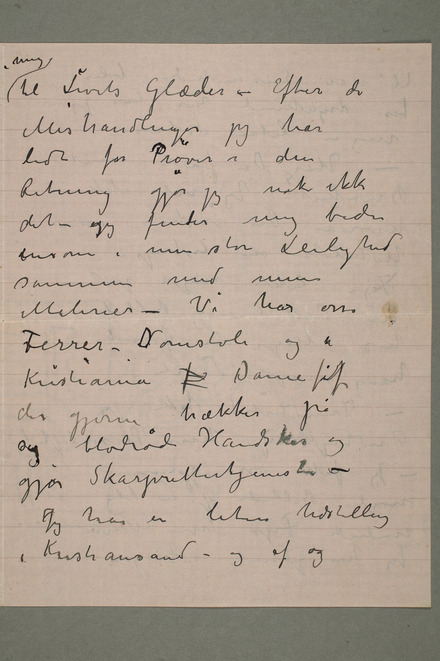 mig
til Livets Glæder – Efter de
Mishandlinger jeg har
lidt for Prøver i den
Retning gjør jeg nok ikke
det – jeg finder mig bedre
ensom i min store Leilighed
sammen med mine
Malerier – Vi har os
Ferrer – Domstole og i
Kristiania Dame
der gjerne trækker på
sig blodrøde Handsker og
gjør Skarprettertjeneste –
Jeg har en liten Udstilling
i Kristiansand – og af og